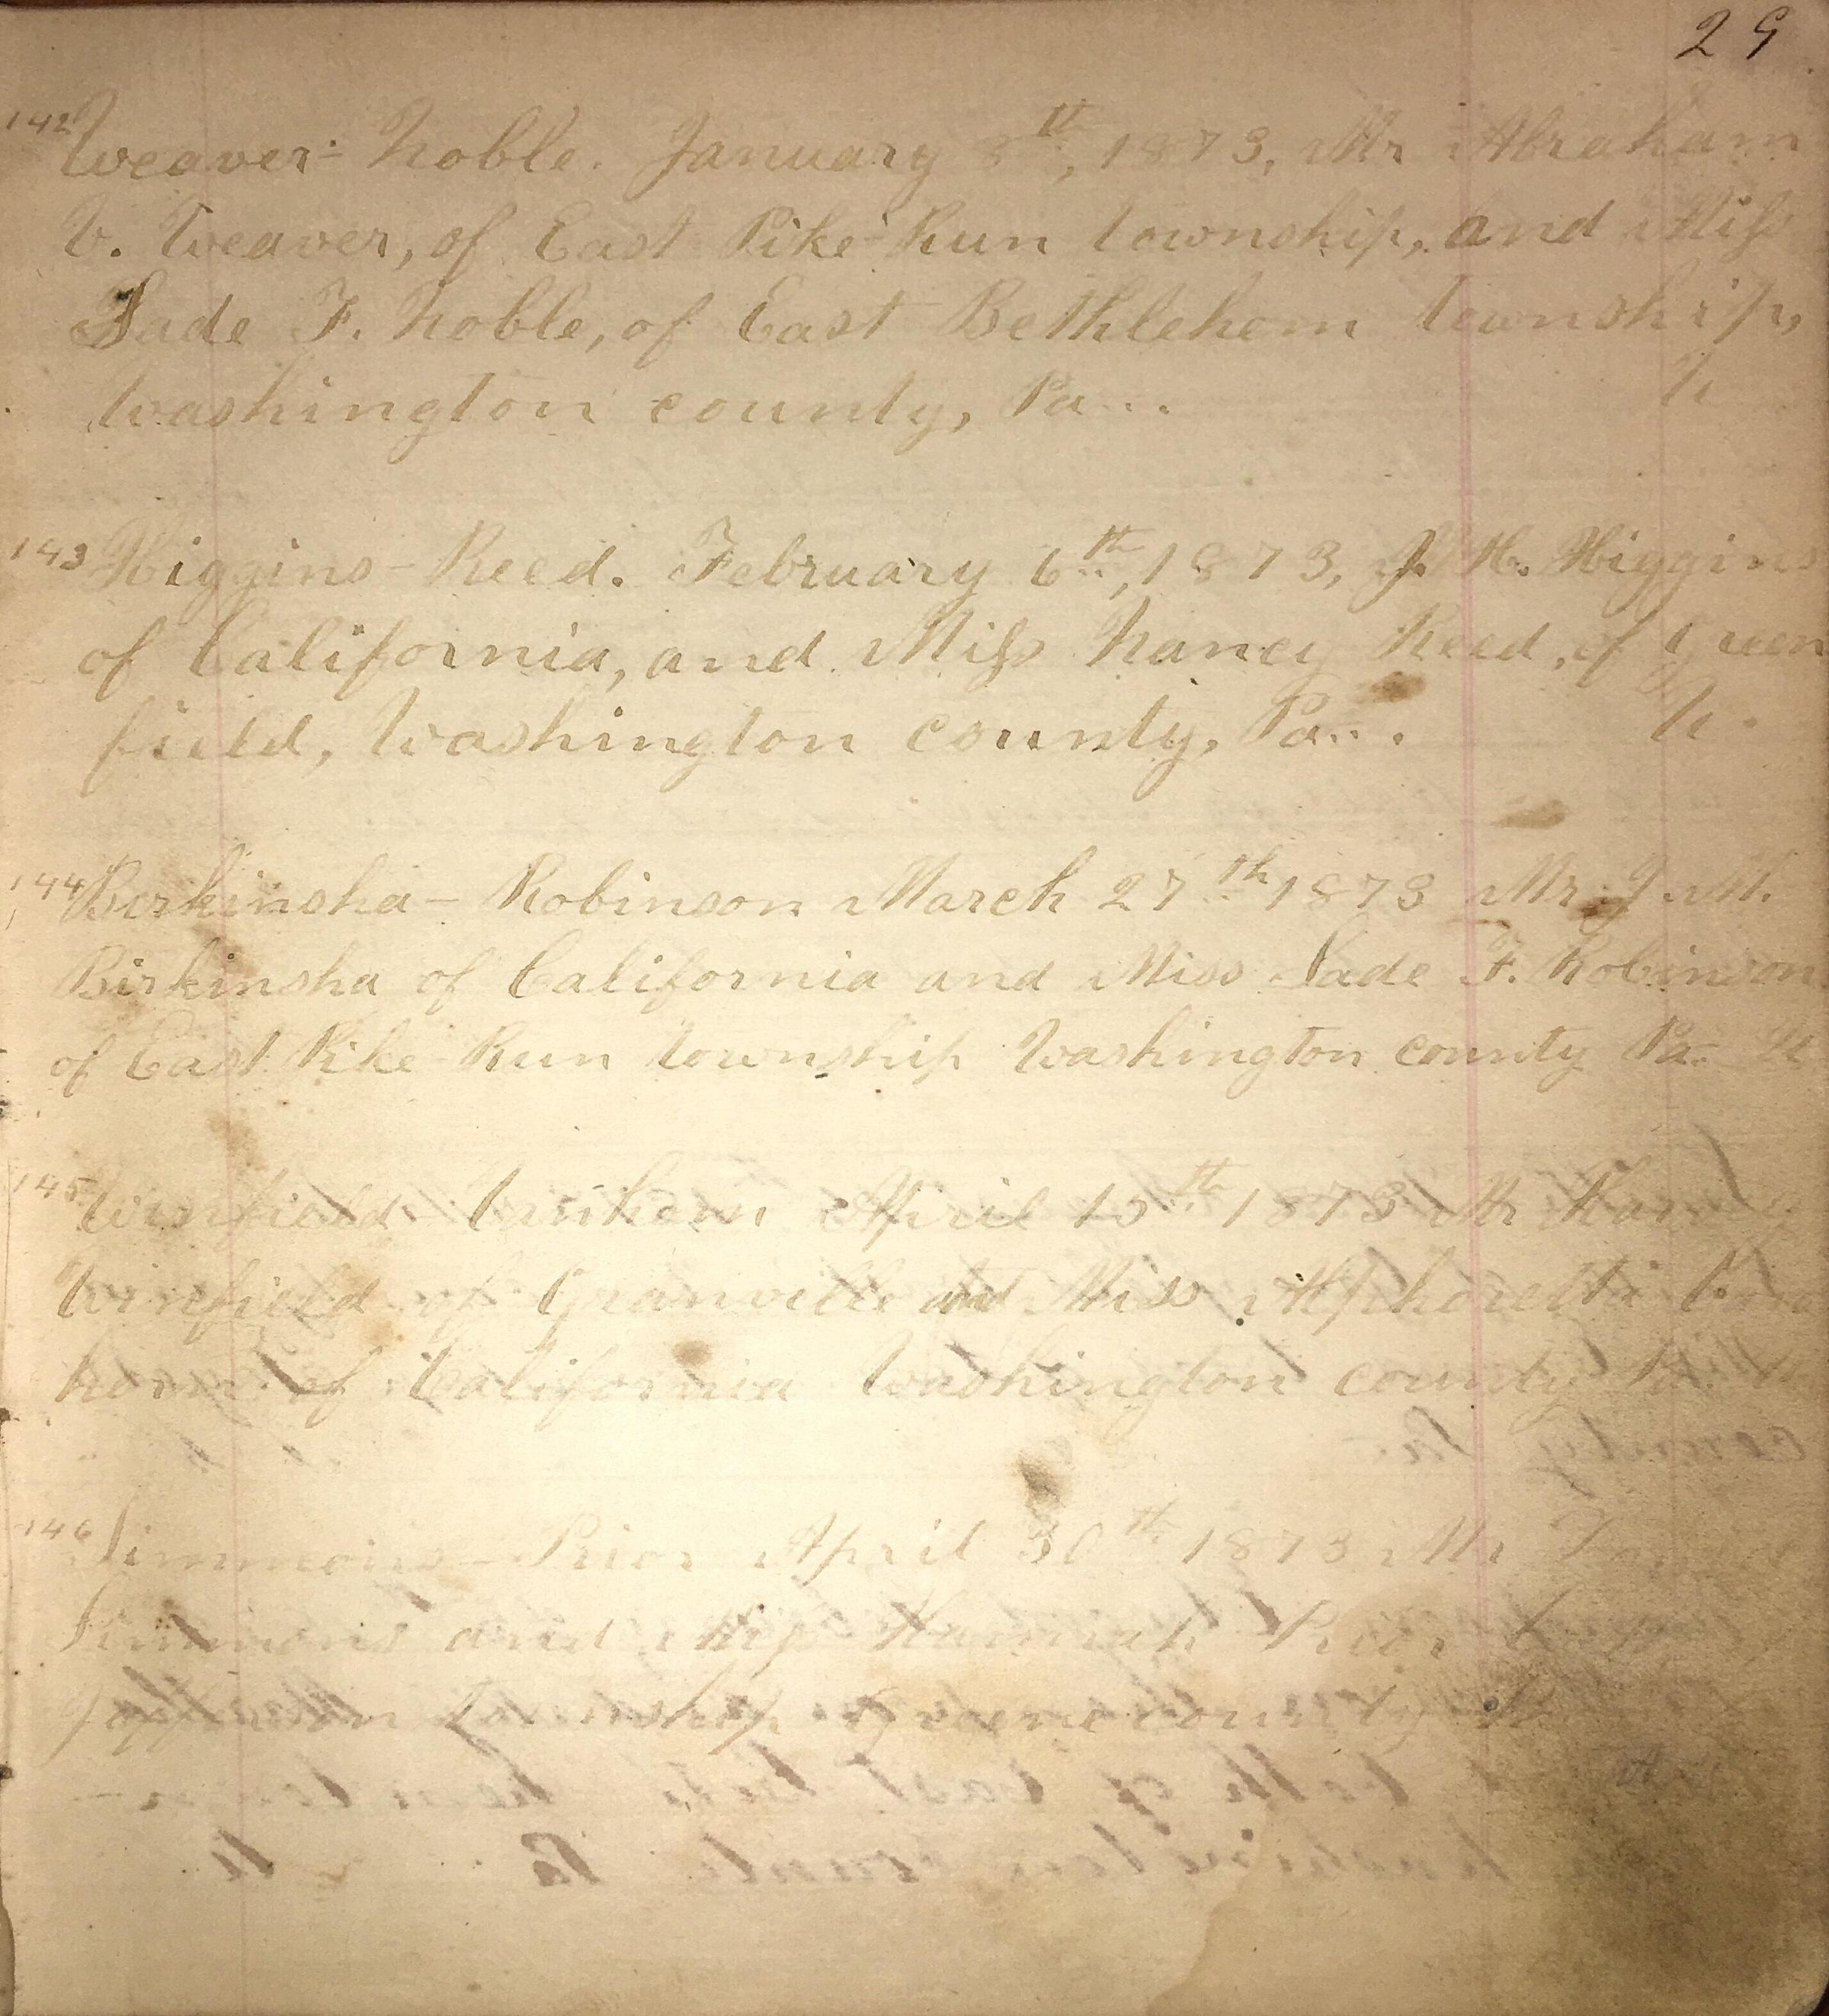 29
142 Weaver-Noble. January 8th, 1873, Mr Abraham
V. Weaver, of East Pike Run township, and Miss
Sade F. Noble, of East Bethlehem township,
Washington county, Pa...
143 Higgins-Reed. February 6th, 1873, J. H. Higgins
of California, and Miss Nancy Reed, of Green
field, Washington county, Pa...
144 Birkinsha-Robinson March 27th 1873 Mr J. M.
Birkinsha of California and Miss Sade F. Robinson
of East Pike Run township Washington county Pa
145 Winfield April 1873 Mr
Winfield of Granville and Miss
horn of California Washington county Pa
146 Simmons-Prior April 30th 1873 Mr
Simmons and Miss Hannah Prior
township county Pa